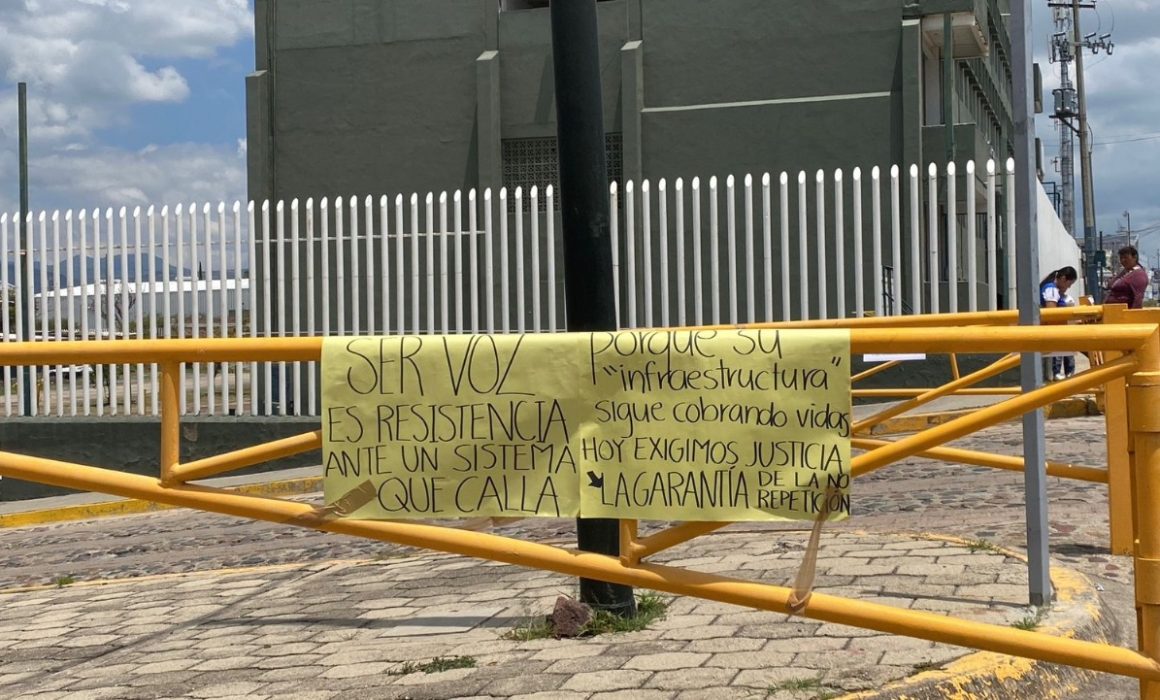 SER VOZ
ES RESISTENCIA
ANTE UN SISTEMA
QUE CALLA
porque su
"infraestructura"
sigue cobrando vidas
HOY EXIGIMOS JUSTICIA
LA GARANTÍA DE LA NO
REPETICIÓN